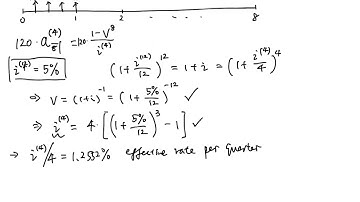 0 1 2 . . . . . . 8
120·a^(4)_8| = 120·(1-v^8)/i^(4)
i^(12) = 5% (1+i^(12)/12)^12 = 1+i = (1+i^(4)/4)^4
⇒ v = (1+i)^-1 = (1+5%/12)^-12 ✓
⇒ i^(4) = 4·[(1+5%/12)^3 - 1] ✓
→ i^(4)/4 = 1.2552% effective rate per quarter